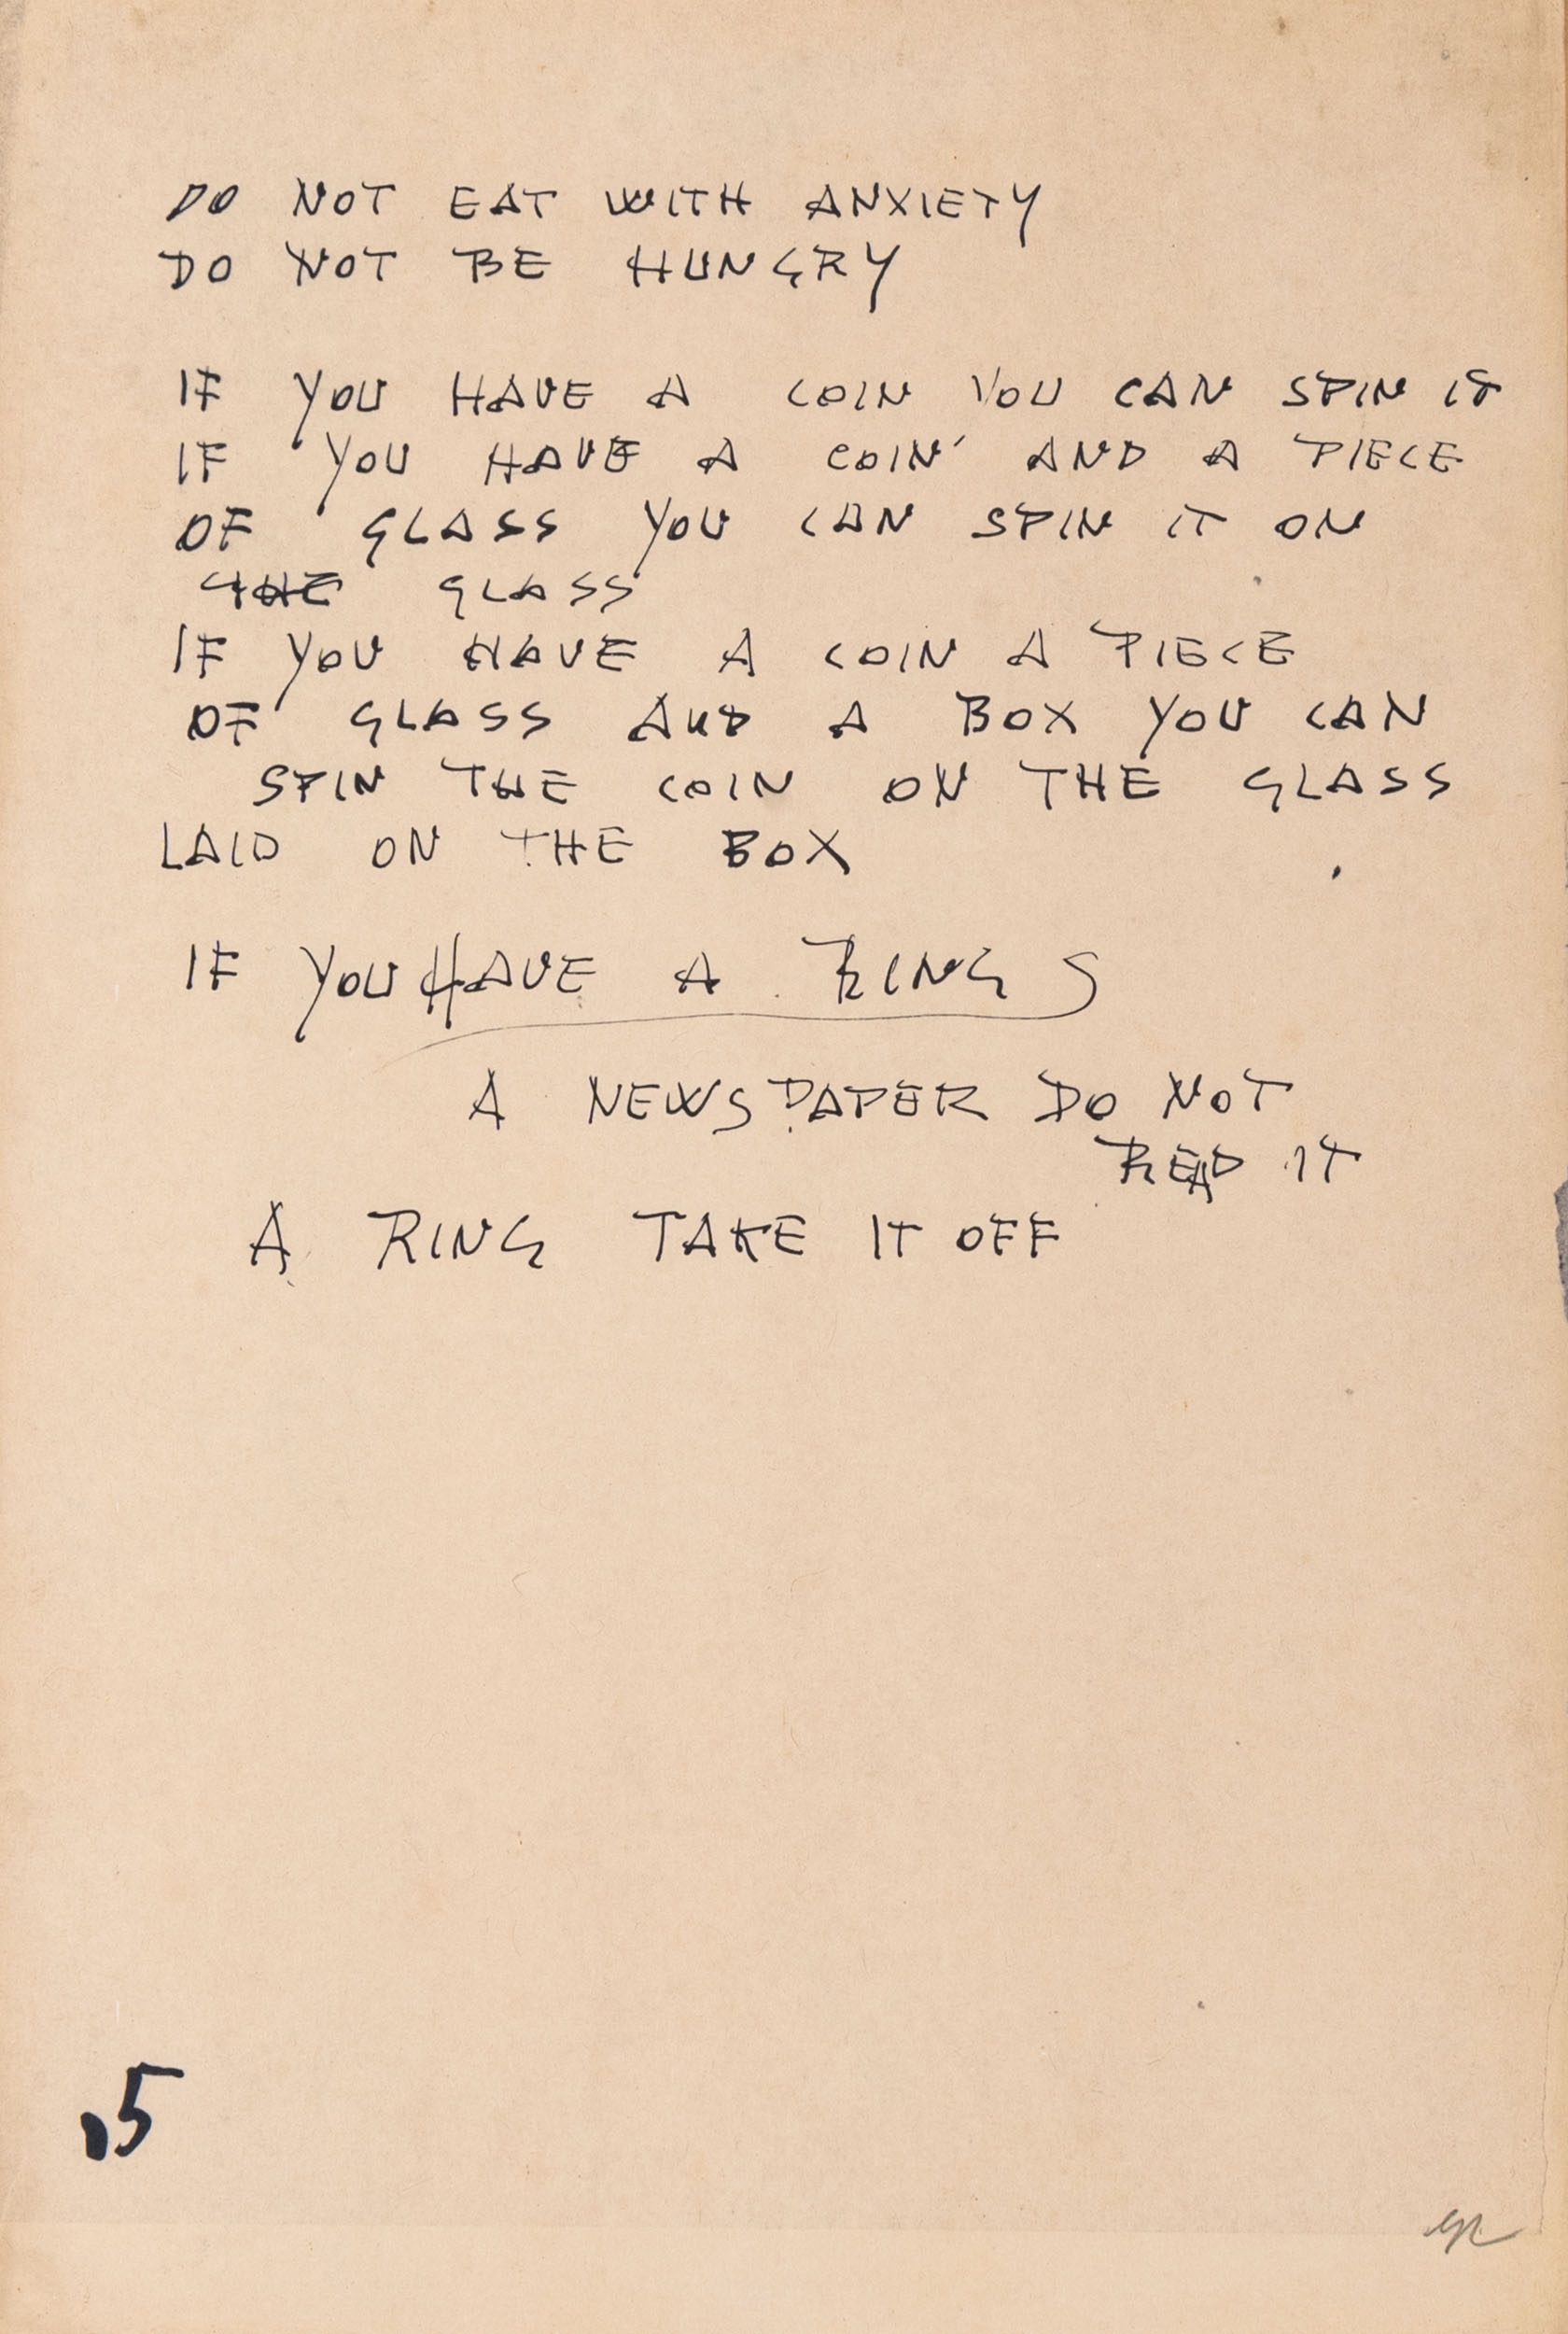 DO NOT EAT WITH ANXIETY
DO NOT BE HUNGRY
IF YOU HAVE A COIN YOU CAN SPIN IT
IF YOU HAVE A COIN AND A PIECE
OF GLASS YOU CAN SPIN IT ON
THE GLASS
IF YOU HAVE A COIN A PIECE
OF GLASS AND A BOX YOU CAN
SPIN THE COIN ON THE GLASS
LAID ON THE BOX
IF YOU HAVE A RING S
A NEWSPAPER DO NOT
READ IT
A RING TAKE IT OFF